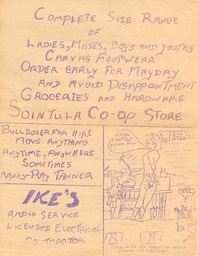 COMPLETE SIZE RANGE
OF
LADIES, MISSES, BOYS AND YOUTHS
CANVAS FOOTWEAR
ORDER EARLY FOR MAYDAY
AND AVOID DISAPPOINTMENT
GROCERIES AND HARDWARE
SOINTULA CO-OP STORE
BULLDOZER FOR HIRE
MOVE ANYTHING
ANYTIME, ANYWHERE
SOMETIMES
APPLY-RAY TANNER
IKE'S
RADIO SERVICE
LICENSED ELECTRICAL
CONTRACTOR